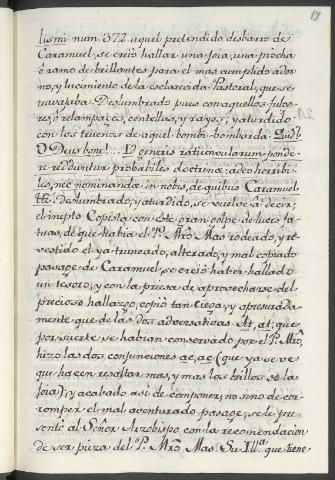 17
lismi num. 572. aquel pretendido desbarro de
Caramuel, se creiò hallar una joia, una piocha
ò ramo de brillantes para el mas cumplido ador
no, y lucimiento de la esclarecida Pastoral, que se
Deslumbrado pues con aquellos fulgo-
res, ò relampagos, centellas, y rayos; y aturdido
con los truenos de aquel bombi-bombarda: Quid?
O Deus bone!... ponde-
re redduntur probabiles doctrinæ, adeò horribi-
les, nec nominandæ in nobis, de quibus Caramuel
&c. deslumbrado, y aturdido, se vuelve à decir,
el inepto Copista con este gran golpe de luces fa-
tuas, de que habia el P. Mrõ Mas rodeado, y re-
vestido el ya truncado, alterado, y mal copiado
pasage de Caramuel: se creiò haber hallado
un tesoro; y con la priesa de aprovecharse del
precioso hallazgo, copiò tan ciega, y apresurada-
mente que de las dos adversativas At, at, que
por suerte se habian conservado por el P. Mrõ,
hizo las dos conjunciones ac, ac (que ya se ve
que hacen resaltar mas, y mas los brillos de la
joia); y acabado asi de componer, no sino de cor-
romper el mal aventurado pasage, se le pre-
sentò al Señor Arzobispo con la recomendacion
de ser pieza del P. Mrõ Mas. Su Ill.ª que tiene